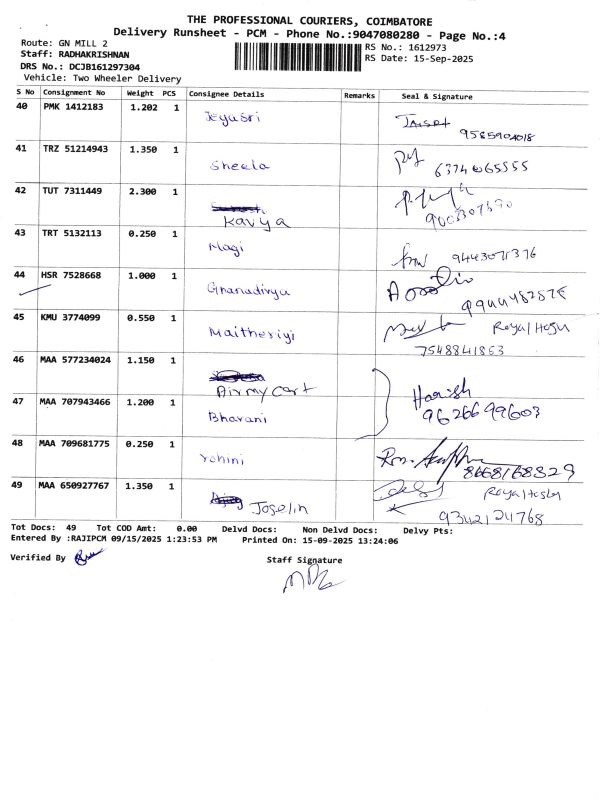 THE PROFESSIONAL COURIERS, COIMBATORE
Delivery Runsheet - PCM - Phone No.:9047080280 - Page No.:4
Route: GN MILL 2
RS No.: 1612973
Staff: RADHAKRISHNAN
RS Date: 15-Sep-2025
DRS No.: DCJB161297304
Vehicle: Two Wheeler Delivery
S No Consignment No Weight PCS Consignee Details Remarks Seal & Signature
40 PMK 1412183 1.202 1 Jeyasri
9585904018
41 TRZ 51214943 1.350 1 Sheela
6374065555
42 TUT 7311449 2.300 1
Kavya
43 TRT 5132113 0.250 1 Magi
9443071376
44 HSR 7528668 1.000 1 Gnanadivya
45 KMU 3774099 0.550 1 Maitheriyi
7548841863
46 MAA 577234024 1.150 1
Airmycart
Harish
47 MAA 707943466 1.200 1 Bhavani
9626699603
48 MAA 709681775 0.250 1 Yohini
8668168329
49 MAA 650927767 1.350 1 Joselin
9342124768
Tot Docs: 49 Tot COD Amt: 0.00 Delvd Docs: Non Delvd Docs: Delvy Pts:
Entered By :RAJIPCM 09/15/2025 1:23:53 PM Printed On: 15-09-2025 13:24:06
Verified By
Staff Signature